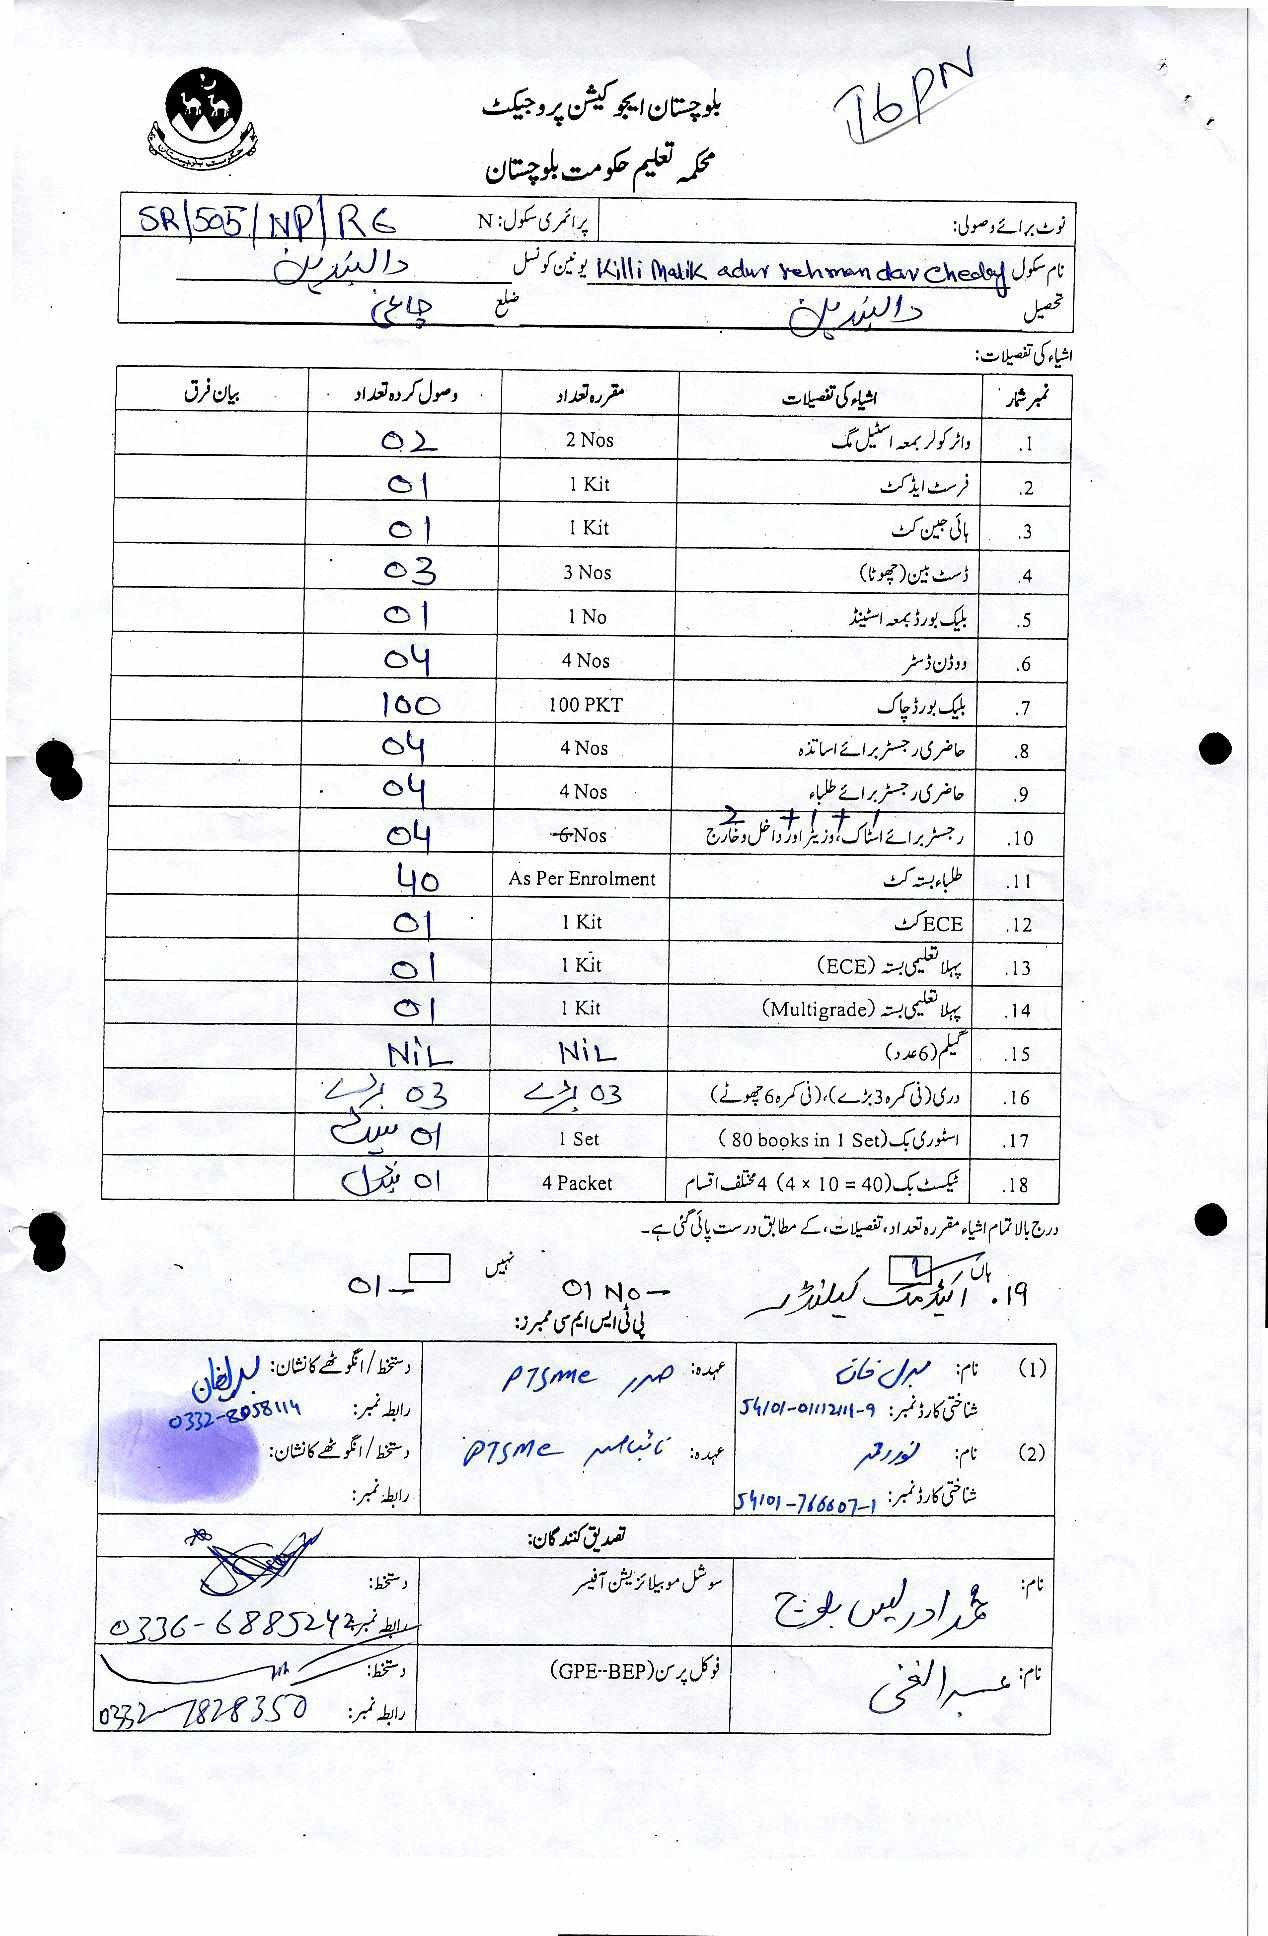 T6PN
بلوچستان ایجوکیشن پروجیکٹ
محکمہ تعلیم حکومت بلوچستان
حکومت بلوچستان
نوٹ برائے وصولی: پرائمری سکول: N SR/505/NP/RG
نام سکول Killi Malik adur rehman dar Chedgy یونین کونسل دالبندین
تحصیل دالبندین ضلع چاغی
اشیاء کی تفصیلات:
نمبر شمار اشیاء کی تفصیلات مقررہ تعداد وصول کردہ تعداد بیان فرق
1. واٹر کولر بمعہ اسٹیل مگ 2 Nos 02
2. فرسٹ ایڈ کٹ 1 Kit 01
3. ہائی جین کٹ 1 Kit 01
4. ڈسٹ بین (چھوٹا) 3 Nos 03
5. بلیک بورڈ بمعہ اسٹینڈ 1 No 01
6. ووڈن ڈسٹر 4 Nos 04
7. بلیک بورڈ چاک 100 PKT 100
8. حاضری رجسٹر برائے اساتذہ 4 Nos 04
9. حاضری رجسٹر برائے طلباء 4 Nos 04
2 + 1 + 1
10. رجسٹر برائے اسٹاک، وزیٹر اور داخل و خارج 6 Nos 04
11. طلباء بستہ کٹ As Per Enrolment 40
12. ECE کٹ 1 Kit 01
13. پہلا تعلیمی بستہ (ECE) 1 Kit 01
14. پہلا تعلیمی بستہ (Multigrade) 1 Kit 01
15. گیلم (6 عدد) NiL NiL
16. دری (فی کمرہ 3 بڑے)، (فی کمرہ 6 چھوٹے) 03 بڑے 03 بڑے
17. اسٹوری بک (80 books in 1 Set) 1 Set 01 سیٹ
18. ٹیکسٹ بک (4 × 10 = 40) 4 مختلف اقسام 4 Packet 01 بنڈل
درج بالا تمام اشیاء مقررہ تعداد، تفصیلات، کے مطابق درست پائی گئی ہے۔
ہاں نہیں
19. اکیڈمک کیلنڈر 01 No - 01
پی ٹی ایس ایم سی ممبرز:
(1) نام: عہدہ: صدر PTSMC دستخط / انگوٹھے کا نشان:
شناختی کارڈ نمبر: 54101-01112111-9 رابطہ نمبر: 0332-8058114
(2) نام: عہدہ: نائب صدر PTSMC دستخط / انگوٹھے کا نشان:
شناختی کارڈ نمبر: 54101-766607-1 رابطہ نمبر:
تصدیق کنندگان:
نام: محمد ادریس بلوچ سوشل موبیلائزیشن آفیسر دستخط:
رابطہ نمبر 0336-6885242
نام: عبدالغنی فوکل پرسن (GPE--BEP) دستخط:
رابطہ نمبر: 0332-7828350